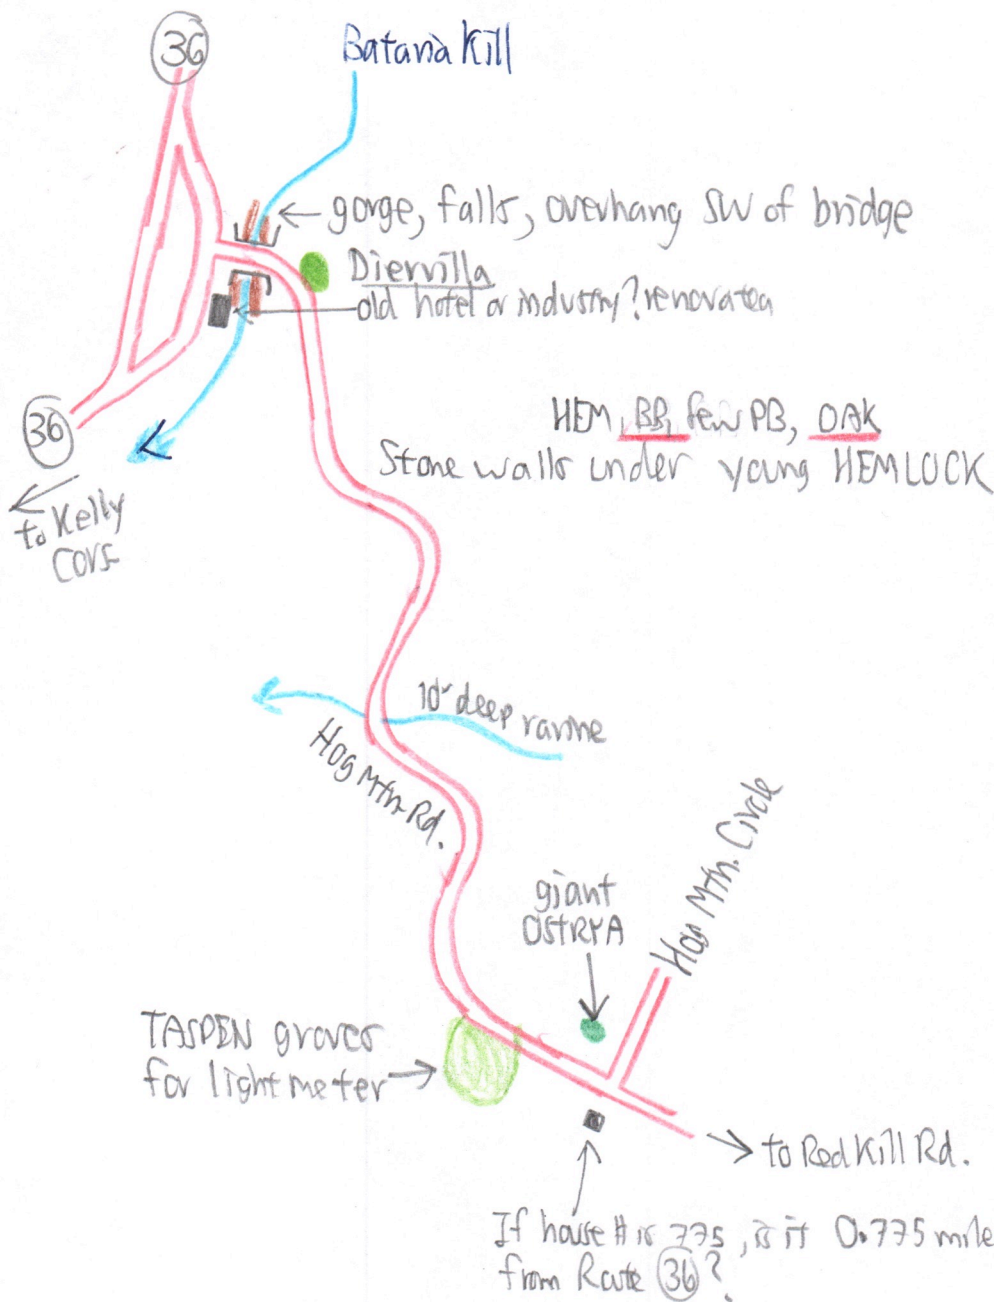 36
Batavia Kill
← gorge, falls, overhang SW of bridge
Diervilla
old hotel or industry? renovated
36
HEM, BB, few PB, OAK
Stone walls under young HEMLOCK
to Kelly
Cors
10' deep ravine
Hog Mtn. Rd.
Hog Mtn. Circle
giant
OSTRYA
TASPEN groves
for light meter →
→ to Red Kill Rd.
If house # is 775, is it 0.775 mile
from Route 36?